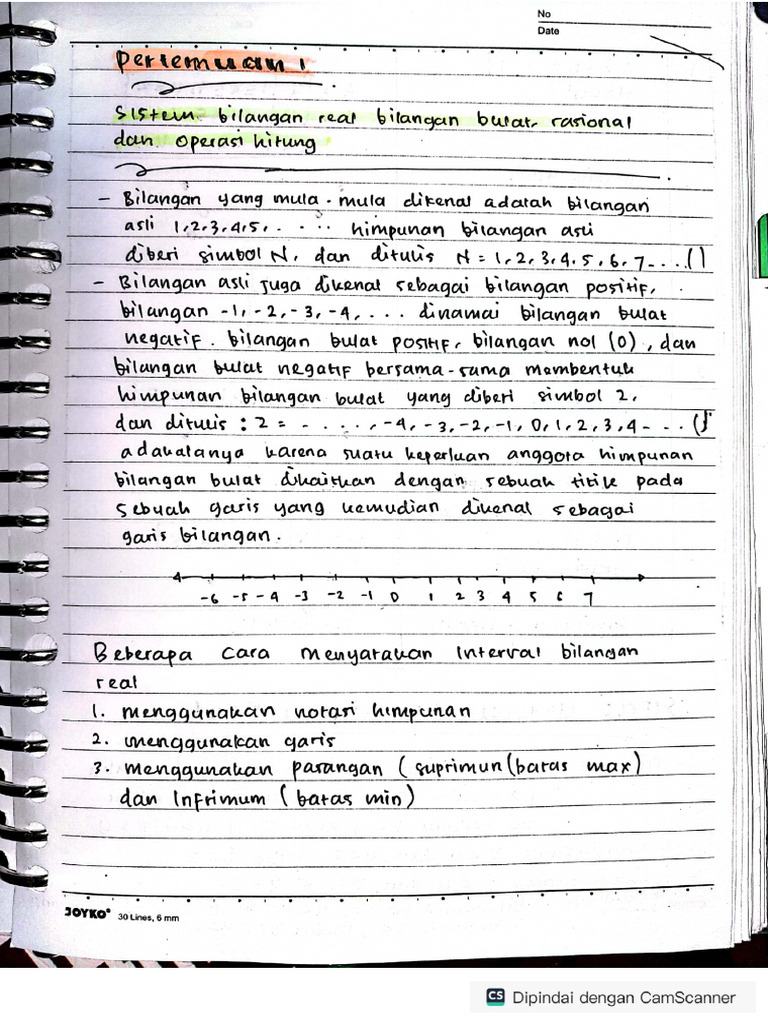 No
Date
Pertemuan 1
Sistem bilangan real bilangan bulat, rasional
dan operasi hitung
- Bilangan yang mula-mula dikenal adalah bilangan
asli 1,2,3,4,5, . . . . himpunan bilangan asli
diberi simbol N, dan ditulis N = 1,2,3,4,5,6,7 - . . . ()
- Bilangan asli juga dikenal sebagai bilangan positif,
bilangan -1,-2,-3,-4, . . . dinamai bilangan bulat
negatif. bilangan bulat positif, bilangan nol (0), dan
bilangan bulat negatif bersama-sama membentuk
himpunan bilangan bulat yang diberi simbol 2,
dan ditulis : 2 = - . . . , -4, -3, -2, -1, 0, 1, 2, 3, 4 - . . ()
adakalanya karena suatu keperluan anggota himpunan
bilangan bulat dikaitkan dengan sebuah titik pada
sebuah garis yang kemudian dikenal sebagai
garis bilangan.
-6 -5 -4 -3 -2 -1 0 1 2 3 4 5 6 7
Beberapa cara menyatakan interval bilangan
real
1. menggunakan notasi himpunan
2. menggunakan garis
3. menggunakan pasangan (suprimun (batas max)
dan Infrimum (batas min)
JOYKO 30 Lines, 6 mm
CS Dipindai dengan CamScanner